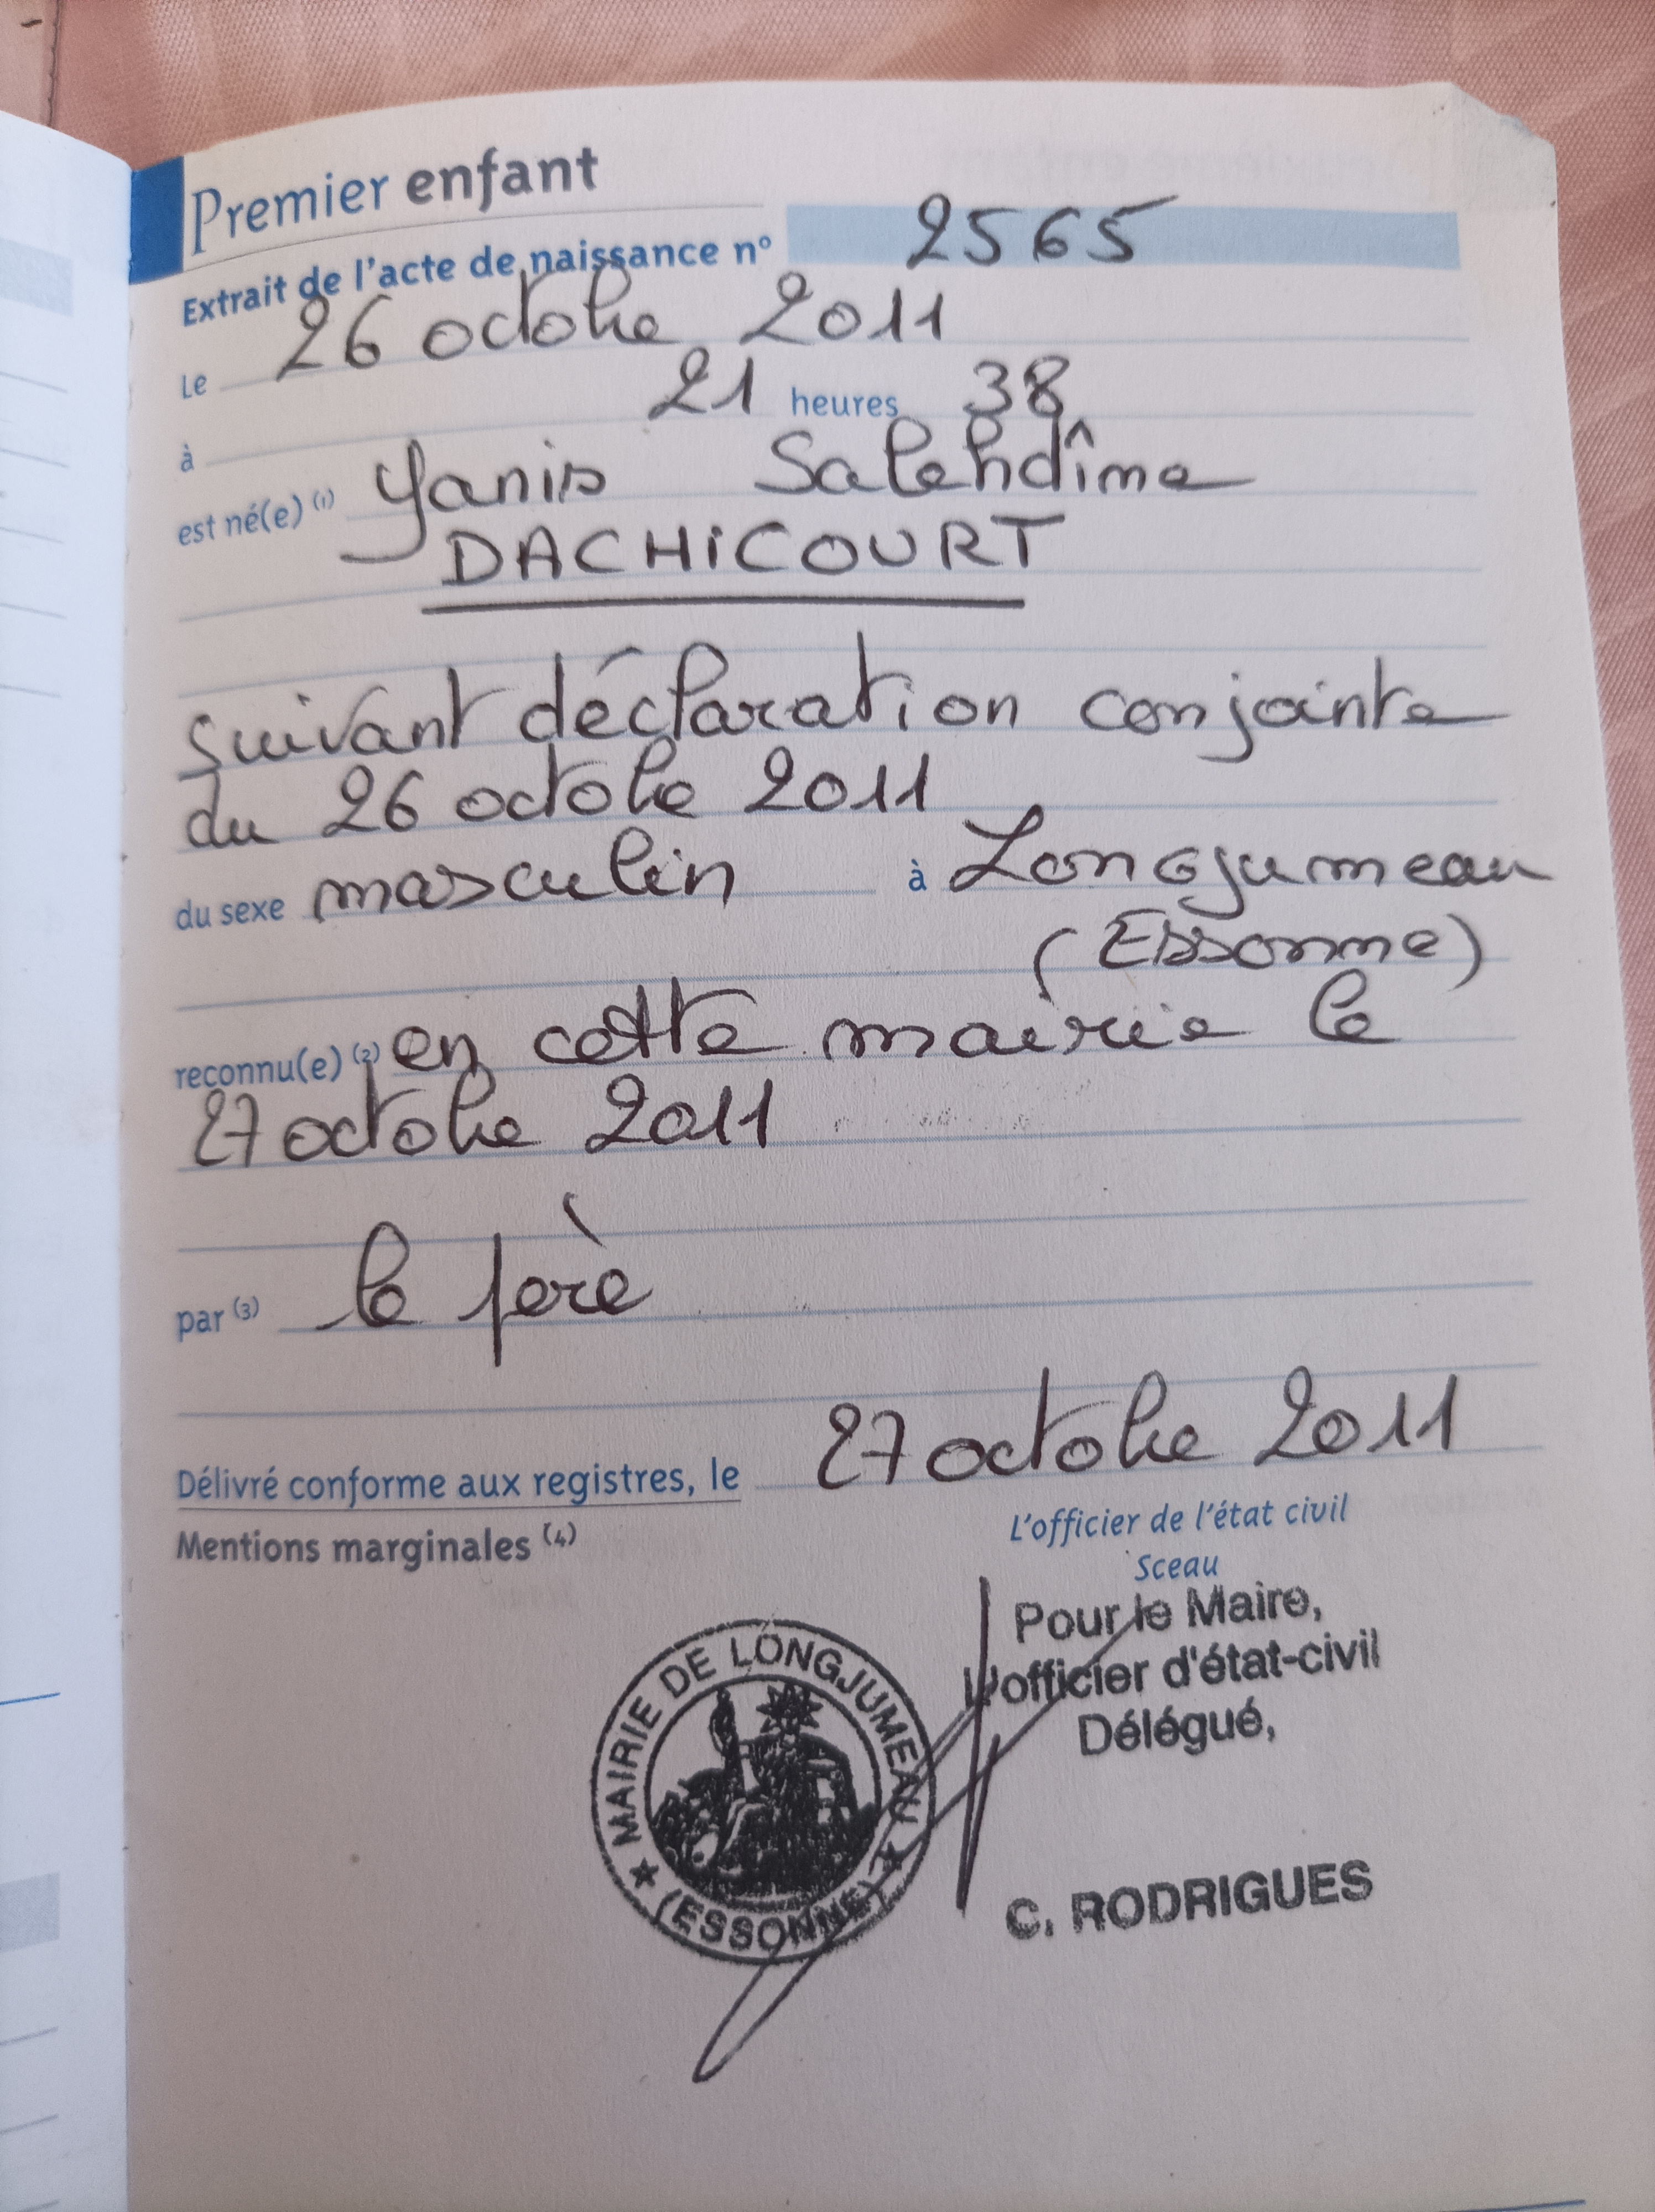 Premier enfant
Extrait de l'acte de naissance n° 2565
Le 26 octobre 2011
à 21 heures 38
est né(e) (1) Yanis Salehdîne
DACHICOURT
suivant déclaration conjointe
du 26 octobre 2011
du sexe masculin à Longjumeau
(Essonne)
reconnu(e) (2) en cette mairie le
27 octobre 2011
par (3) le père
Délivré conforme aux registres, le 27 octobre 2011
Mentions marginales (4)
L'officier de l'état civil
Sceau
Pour le Maire,
L'officier d'état-civil
Délégué,
MAIRIE DE LONGJUMEAU
(ESSONNE)
C. RODRIGUES